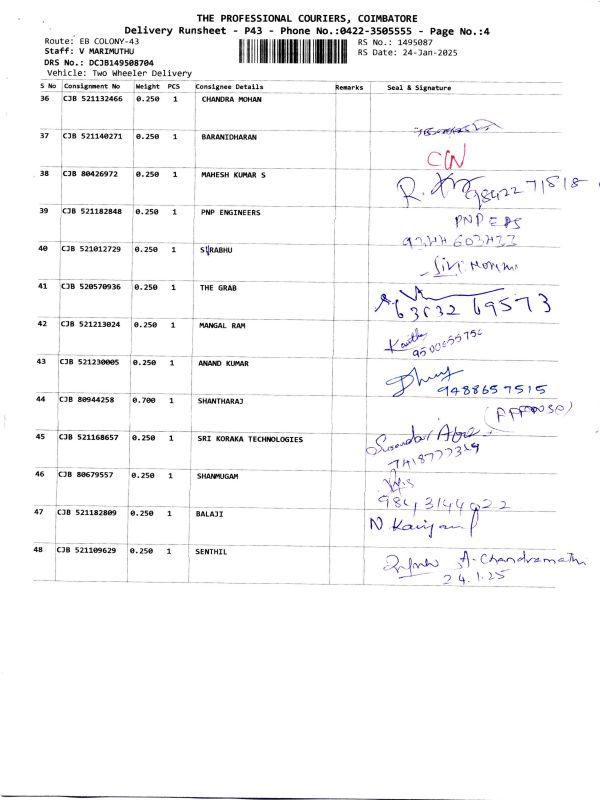 THE PROFESSIONAL COURIERS, COIMBATORE
Delivery Runsheet - P43 - Phone No.:0422-3505555 - Page No.:4
Route: EB COLONY-43 RS No.: 1495087
Staff: V MARIMUTHU RS Date: 24-Jan-2025
DRS No.: DCJB149508704
Vehicle: Two Wheeler Delivery
S No Consignment No Weight PCS Consignee Details Remarks Seal & Signature
36 CJB 521132466 0.250 1 CHANDRA MOHAN
37 CJB 521140271 0.250 1 BARANIDHARAN
38 CJB 80426972 0.250 1 MAHESH KUMAR S
39 CJB 521182848 0.250 1 PNP ENGINEERS PNP
40 CJB 521012729 0.250 1
41 CJB 520570936 0.250 1 THE GRAB
42 CJB 521213024 0.250 1 MANGAL RAM
43 CJB 521230005 0.250 1 ANAND KUMAR 9488657515
44 CJB 80944258 0.700 1 SHANTHARAJ
45 CJB 521168657 0.250 1 SRI KORAKA TECHNOLOGIES
46 CJB 80679557 0.250 1 SHANMUGAM
47 CJB 521182809 0.250 1 BALAJI
48 CJB 521109629 0.250 1 SENTHIL A. Chandramathi
24.1.25